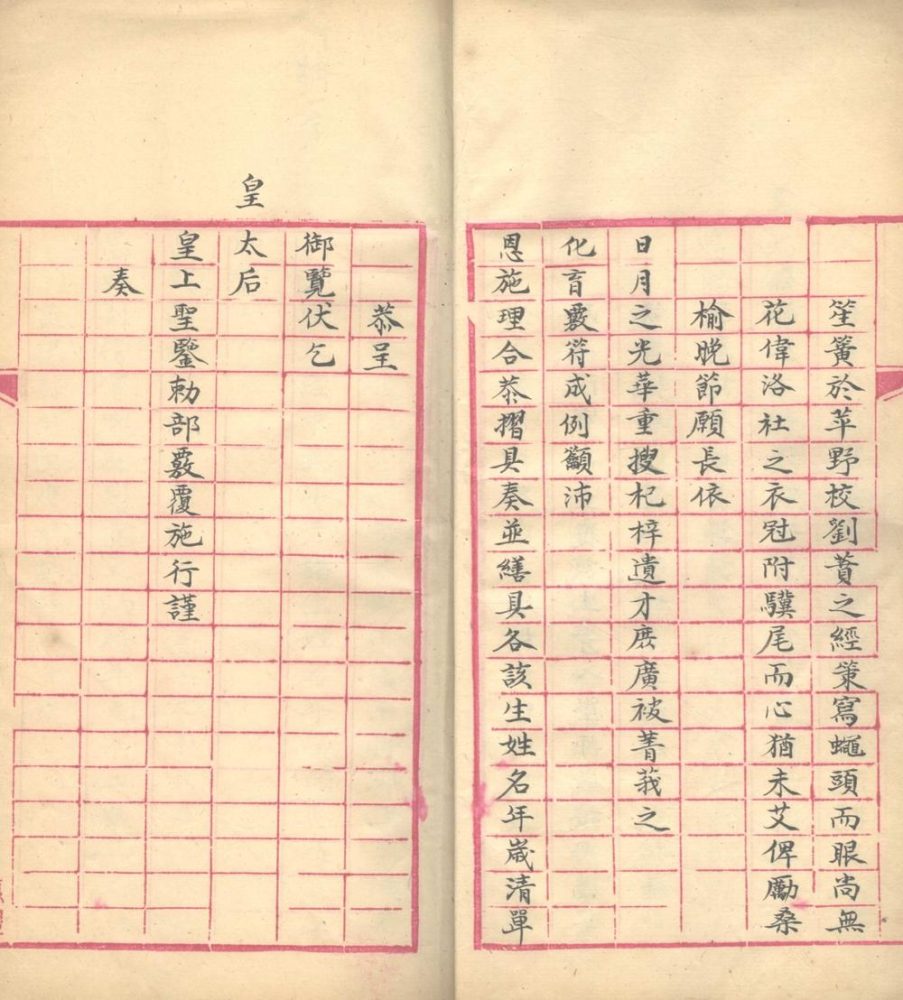 笙簧於苹野校劉蕡之經策寫蠅頭而眼尚無
花偉洛社之衣冠附驥尾而心猶未艾俾勵桑
榆晚節願長依
日月之光華重搜杞梓遺才庶廣被菁莪之
化育覈符成例籲沛
恩施理合恭摺具奏並繕具各該生姓名年嵗清單
恭呈
御覽伏乞
皇太后
皇上聖鑒勅部覈覆施行謹
奏